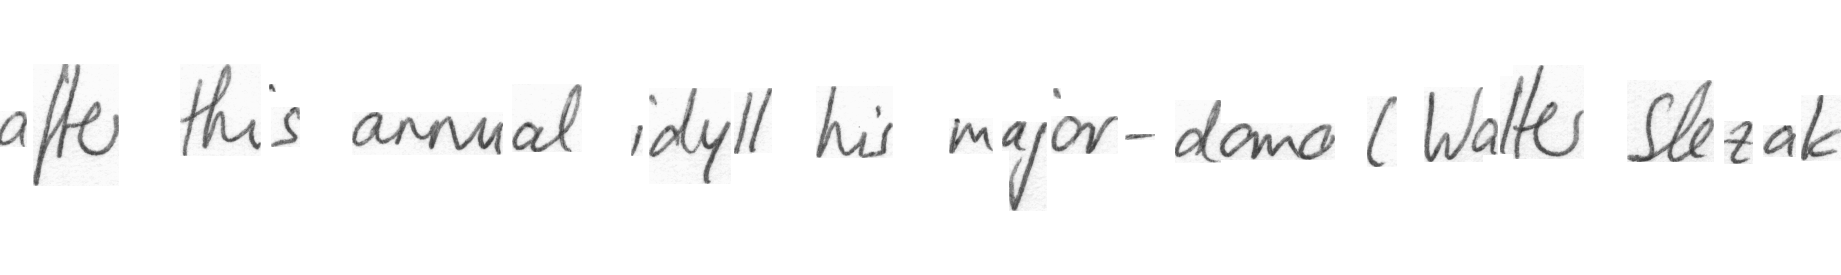 after this annual idyll his major-domo ( Walter Slezak